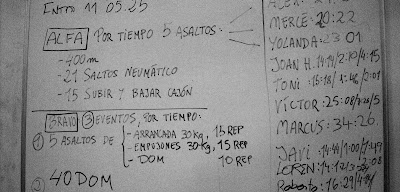 ENTTO 11 05.25
ALFA POR TIEMPO 5 ASALTOS:
-400m
-21 SALTOS NEUMÁTICO
-15 SUBIR Y BAJAR CAJÓN
BRAVO 3 EVENTOS, POR TIEMPO:
1 5 ASALTOS DE
-ARRANCADA 30KG, 15 REP
-EMPUJONES 30KG, 15 REP
-DOM 10 REP
2 40 DOM
MERCÈ: 20:22
YOLANDA: 23 01
JOAN H.
TONI
VÍCTOR: 25:08
MARCUS: 34:26.
JAVI
LOREN:
Roberto